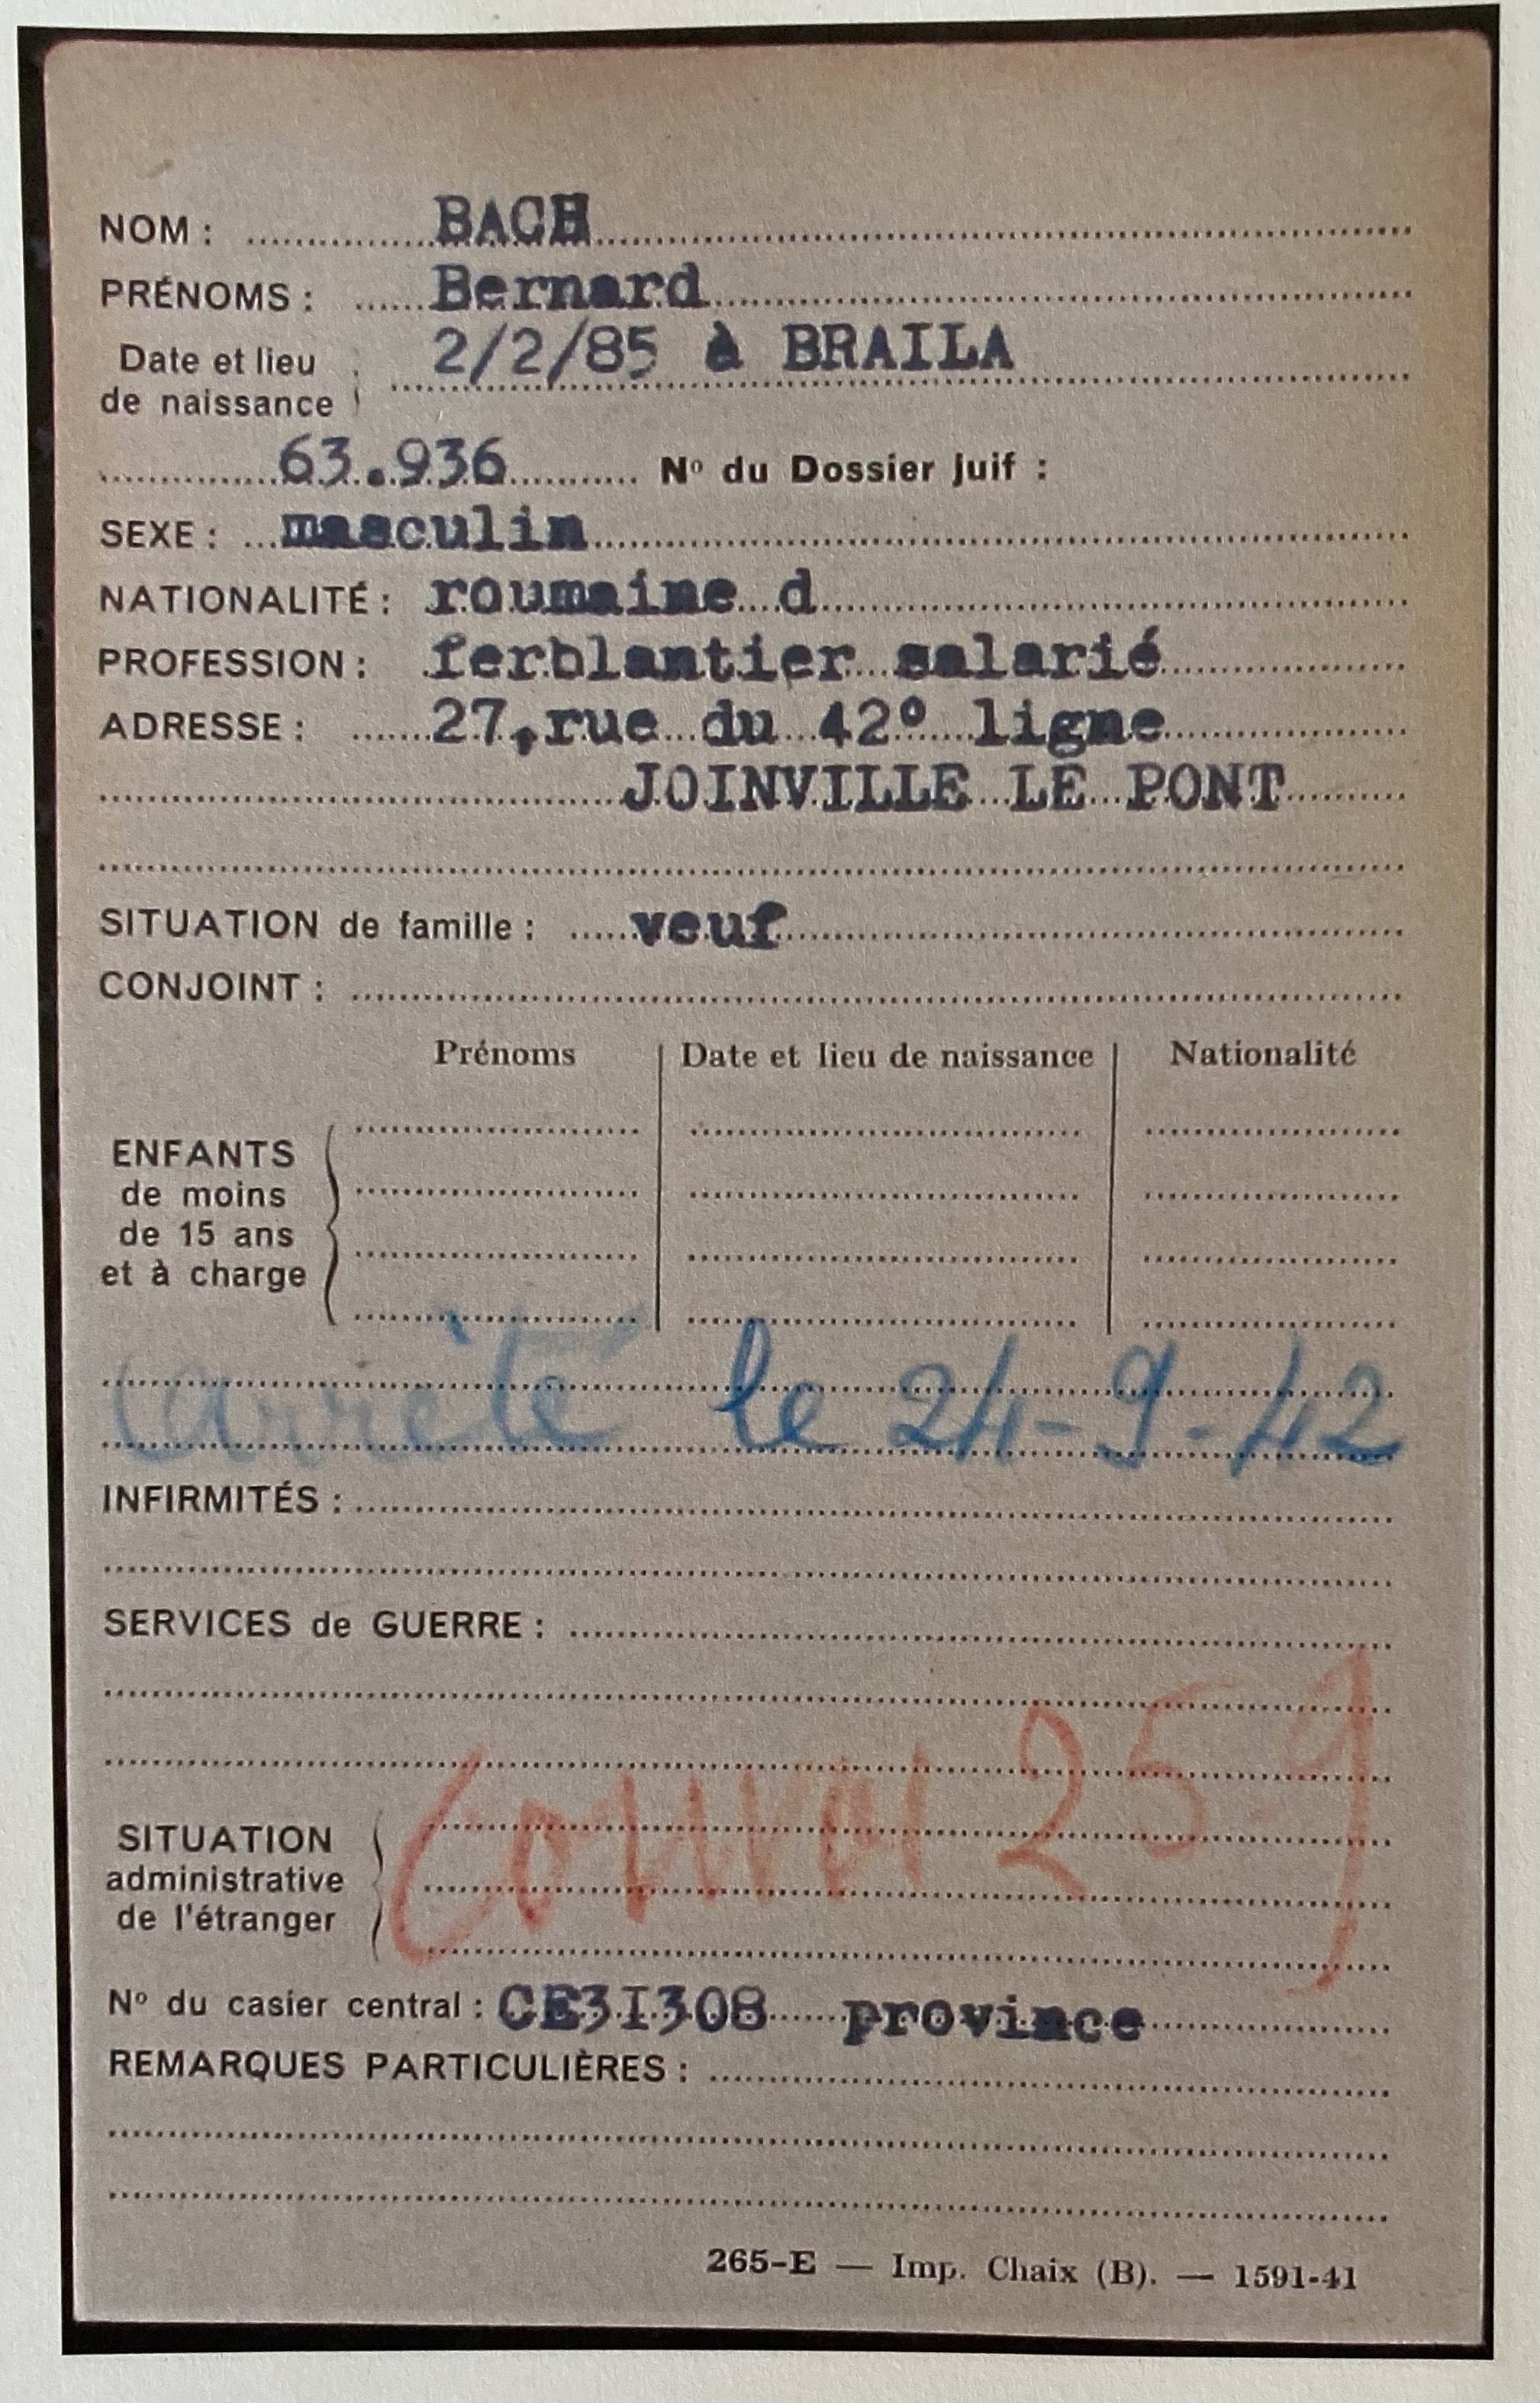 NOM : BACH
PRÉNOMS : Bernard
Date et lieu de naissance 2/2/85 à BRAILA
63.936 Nº du Dossier juif :
SEXE : masculin
NATIONALITÉ : roumaine d
PROFESSION : ferblantier salarié
ADRESSE : 27,rue du 42º ligne
JOINVILLE LE PONT
SITUATION de famille : veuf
CONJOINT :
Prénoms Date et lieu de naissance Nationalité
ENFANTS
de moins
de 15 ans
et à charge
arrêté le 24-9-42
INFIRMITÉS :
SERVICES de GUERRE :
Convoi 25-9
SITUATION
administrative
de l'étranger
Nº du casier central : CE3I308 province
REMARQUES PARTICULIÈRES :
265-E — Imp. Chaix (B). — 1591-41